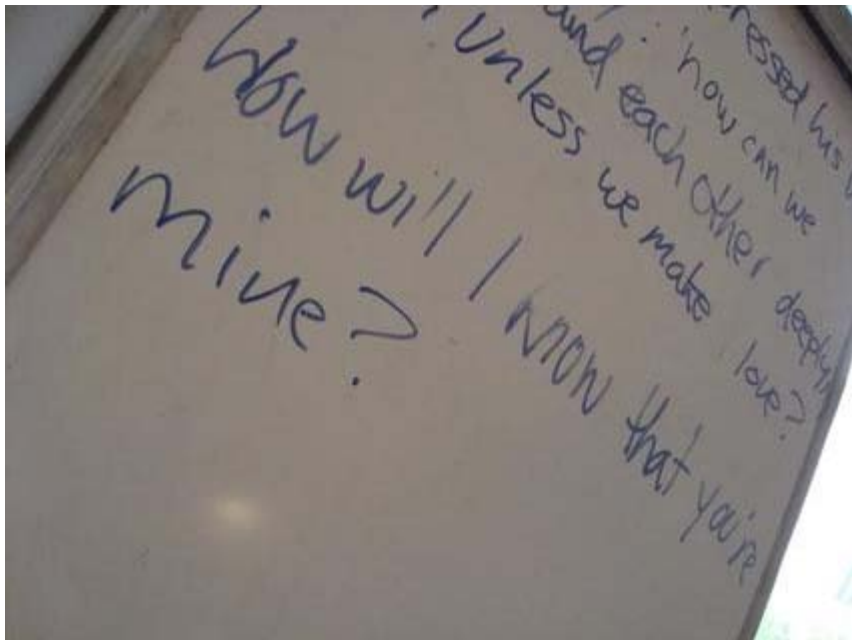 ressed his
: 'how can we
and each other deeply,
, unless we make love?
How will I know that you're
mine?